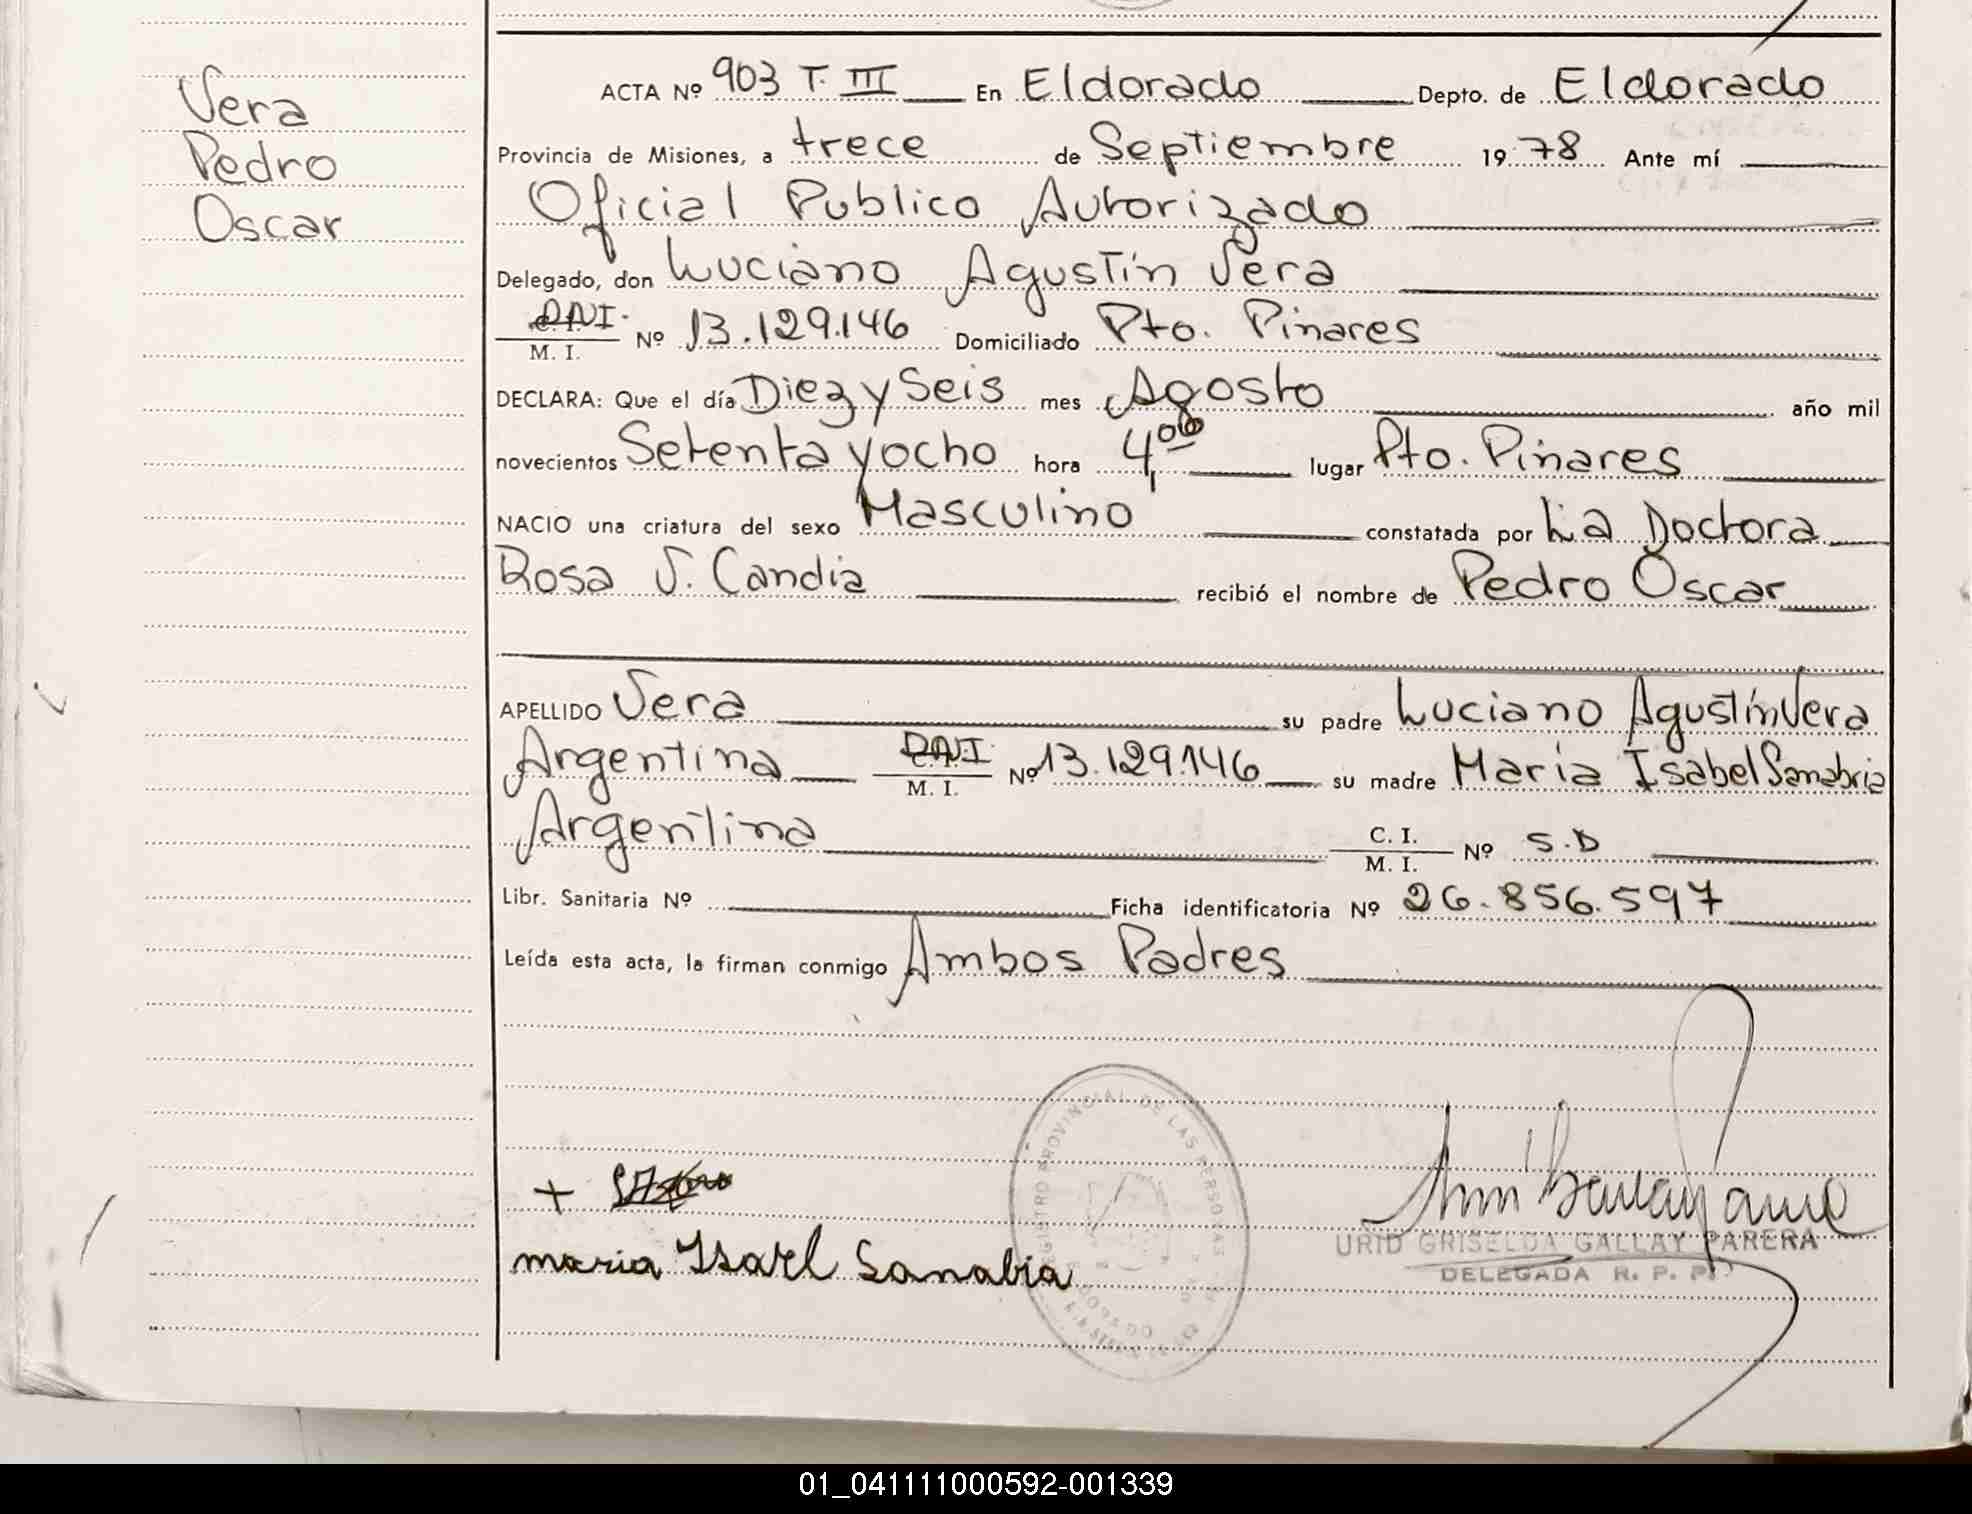 Vera
Pedro
Oscar
ACTA Nº 903 T. III En Eldorado Depto. de Eldorado
Provincia de Misiones, a trece de Septiembre 1978 Ante mí
Oficial Publico Autorizado
Delegado, don Luciano Agustín Vera
DNI. M. I. Nº 13.129.146 Domiciliado Pto. Pinares
DECLARA: Que el día Diez y Seis mes Agosto año mil
novecientos Setenta y ocho hora 4,00 lugar Pto. Pinares
NACIO una criatura del sexo Masculino constatada por La Doctora
Rosa V. Candia recibió el nombre de Pedro Oscar
APELLIDO Vera su padre Luciano Agustín Vera
Argentina DNI. M. I. Nº 13.129.146 su madre María Isabel Sanabria
Argentina C. I. M. I. Nº S.D
Libr. Sanitaria Nº Ficha identificatoria Nº 26.856.597
Leída esta acta, la firman conmigo Ambos Padres
REGISTRO PROVINCIAL DE LAS PERSONAS
+
maria Isabel Sanabia
URID GRISELDA GALLAY PARERA
DELEGADA R. P. P.
01_041111000592-001339